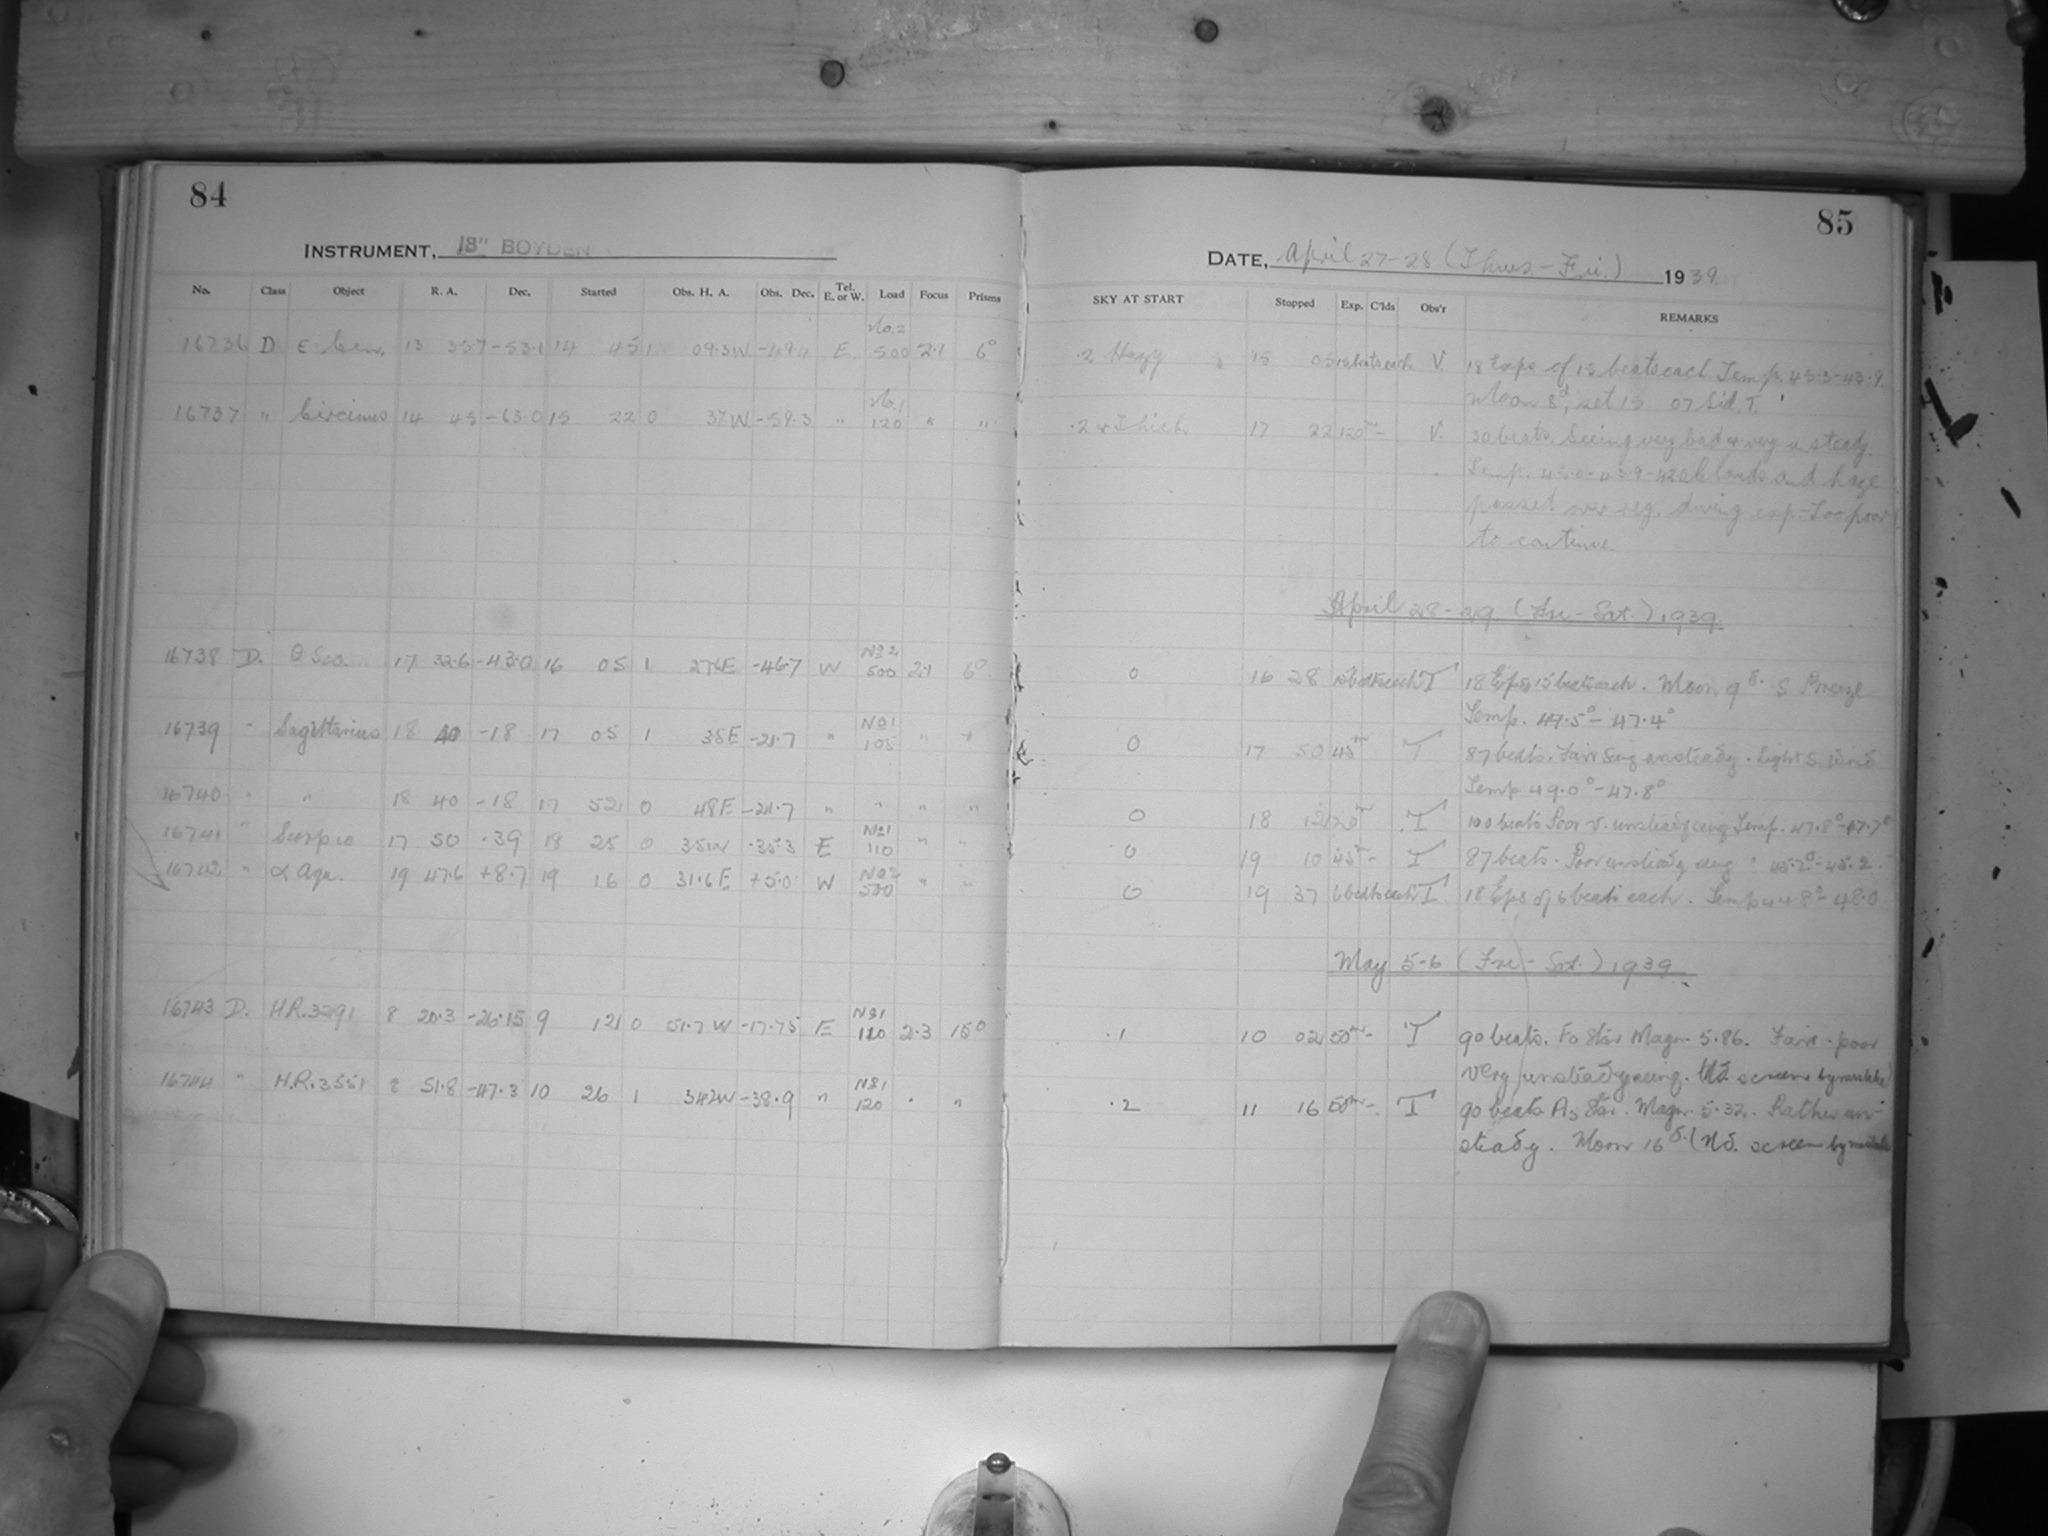 84
INSTRUMENT, 13" BOYDEN
No. Class Object R. A. Dec. Started Obs. H. A. Obs. Dec. Tel. E. or W. Load Focus Prisms
16736 D ε Cen. 13 33.7 -53.1 14 45 1 09.3W -49.4 E No.2 500 2.1 6°
16737 " Circinus 14 45 -63.0 15 22 0 37W -59.3 " No.1 120 " "
16738 D. θ Sco. 17 32.6 -43.0 16 05 1 27.6E -46.7 W No 2 500 2.1 6°
16739 " Sagittarius 18 40 -18 17 05 1 35E -21.7 " No 1 105 " "
16740 " " 18 40 -18 17 52 0 48E -21.7 " " " "
16741 " Scorpio 17 50 -39 18 25 0 35W -35.3 E No 1 110 " "
16742 " α Aqu. 19 47.6 +8.7 19 16 0 31.6E +5.0 W No 2 500 " "
16743 D. H.R. 3291 8 20.3 -26.15 9 12 0 51.7W -17.75 E No 1 120 2.3 15°
16744 " H.R. 3551 8 51.8 -47.3 10 26 1 34.2W -38.9 " No 1 120 " "
85
DATE, April 27-28 (Thurs-Fri.) 1939
SKY AT START Stopped Exp. C'lds Obs'r REMARKS
.2 Hazy 15 05 15 beats each V. 18 Exps of 15 beats each Temp. 45.3-43.9
Moon 8d, set 15 07 Sid. T.
.2 & Thick 17 22 120m - V. 30 beats. Seeing very bad & very unsteady.
Temp. 45.0-43.9-42.0 Clouds and haze
passed over reg. during exp-Too poor
to continue.
April 28-29 (Fri-Sat.) 1939
0 16 28 15 beats each T 18 Exps 15 beats each. Moon 9d. S Breeze
Temp. 49.5°-47.4°
0 17 50 45m T 87 beats. Fair seeing unsteady. Light S. Wind
Temp 49.0°-47.8°
0 18 12 20m T 100 beats Poor v. unsteady seeing Temp. 47.8°-47.7°
0 19 10 45m - T 87 beats. Poor unsteady seeing "
0 19 37 6 beats each T 18 Exps of 6 beats each. Temp 44.8°-48.0
May 5-6 (Fri-Sat.) 1939
.1 10 02 50m - T 90 beats. F0 Star Magn. 5.86. Fair-poor
very unsteady seeing. (Nd. screen by mistake)
.2 11 16 50m - T 90 beats A3 Star. Magn. 5.32. Rather un-
steady. Moon 16d. (Nd. screen by mistake